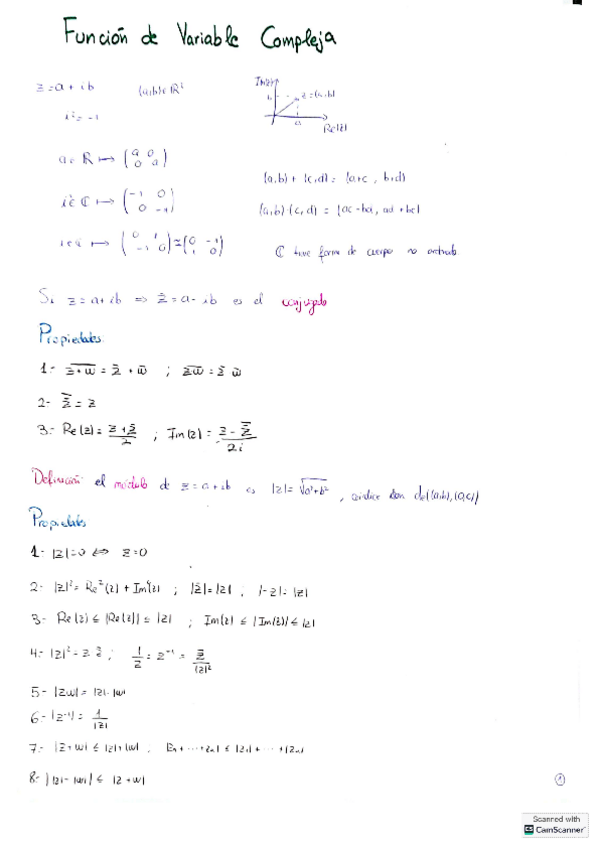 Función de Variable Compleja
z = a + ib (a,b) ∈ ℝ²
i² = -1
Im(z) b z = (a,b) a Re(z)
a ∈ ℝ ↦ (a 0 / 0 a)
(a,b) + (c,d) = (a+c, b+d)
i ∈ ℂ ↦ (-1 0 / 0 -1)
(a,b)·(c,d) = (ac - bd, ad + bc)
↦ (0 1 / -1 0) = (0 -1 / 1 0)
ℂ tiene forma de cuerpo no ordenado
Si z = a + ib ⇒ z̄ = a - ib es el conjugado
Propiedades:
1.- \overline{z+w} = z̄ + w̄ ; \overline{zw} = z̄ w̄
2- \overline{z̄} = z
3.- Re(z) = (z + z̄)/2 ; Im(z) = (z - z̄)/2i
Definición: el módulo de z = a + ib es |z| = √(a²+b²), d((a,b),(0,0))
Propiedades
1- |z| = 0 ⇔ z = 0
2- |z|² = Re²(z) + Im²(z) ; |z̄| = |z| ; |-z| = |z|
3- Re(z) ≤ |Re(z)| ≤ |z| ; Im(z) ≤ |Im(z)| ≤ |z|
4.- |z|² = z z̄ ; 1/z = z⁻¹ = z̄/|z|²
5- |zw| = |z|·|w|
6- |z⁻¹| = 1/|z|
7.- |z+w| ≤ |z|+|w| , |z₁+···+zₙ| ≤ |z₁|+···+|zₙ|
8- ||z|-|w|| ≤ |z+w|
1
Scanned with
CS CamScanner